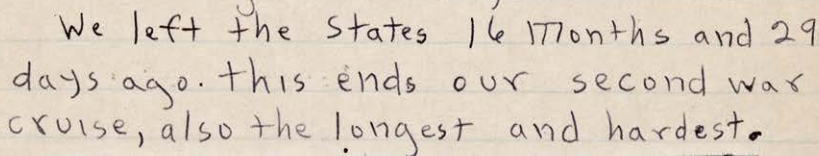 We left the States 16 Months and 29
days ago. this ends our second war
cruise, also the longest and hardest.